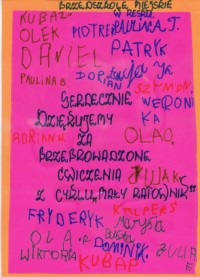 PRZEDSZKOLE MIEJSKIE
W RESKU
KUBAZ
OLEK
PIOTREK
PAULINA T.
DANIEL
PATRYK
PAULINA B
DORIAN
SZYMON
SERDECZNIE
WERONIKA
DZIĘKUJEMY
ADRIAN
ZA
OLA O.
PRZEPROWADZONE
ĆWICZENIA
Z CYKLU „MAŁY RATOWNIK"
FRYDERYK
KACPER S
OLA.R
WIKTORIA
DOMINIK
JULIA
KUBA P